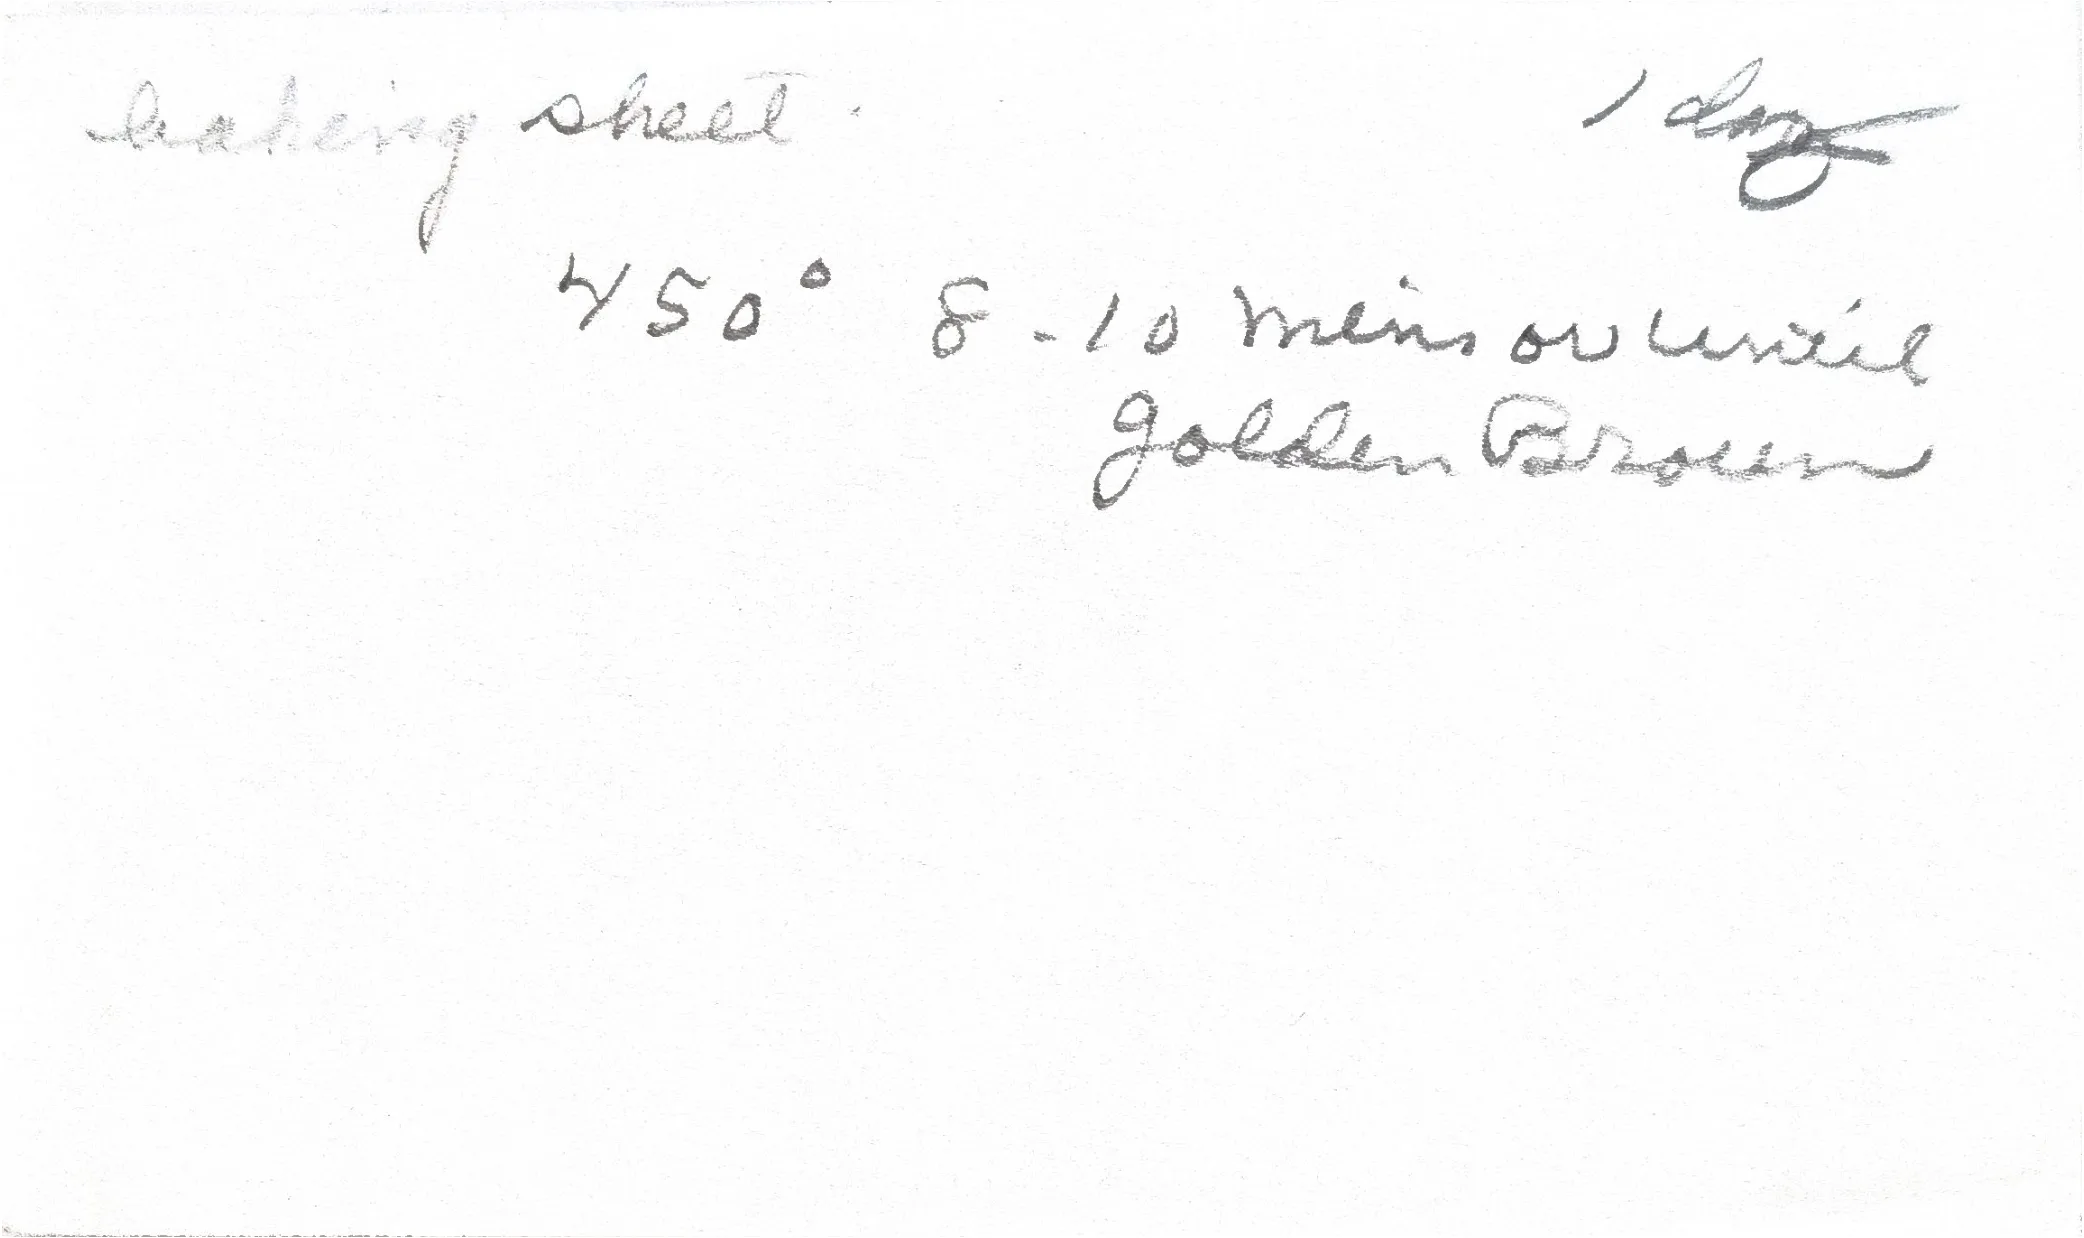 baking sheet. 1 doz
450° 8-10 mins or until
golden Brown